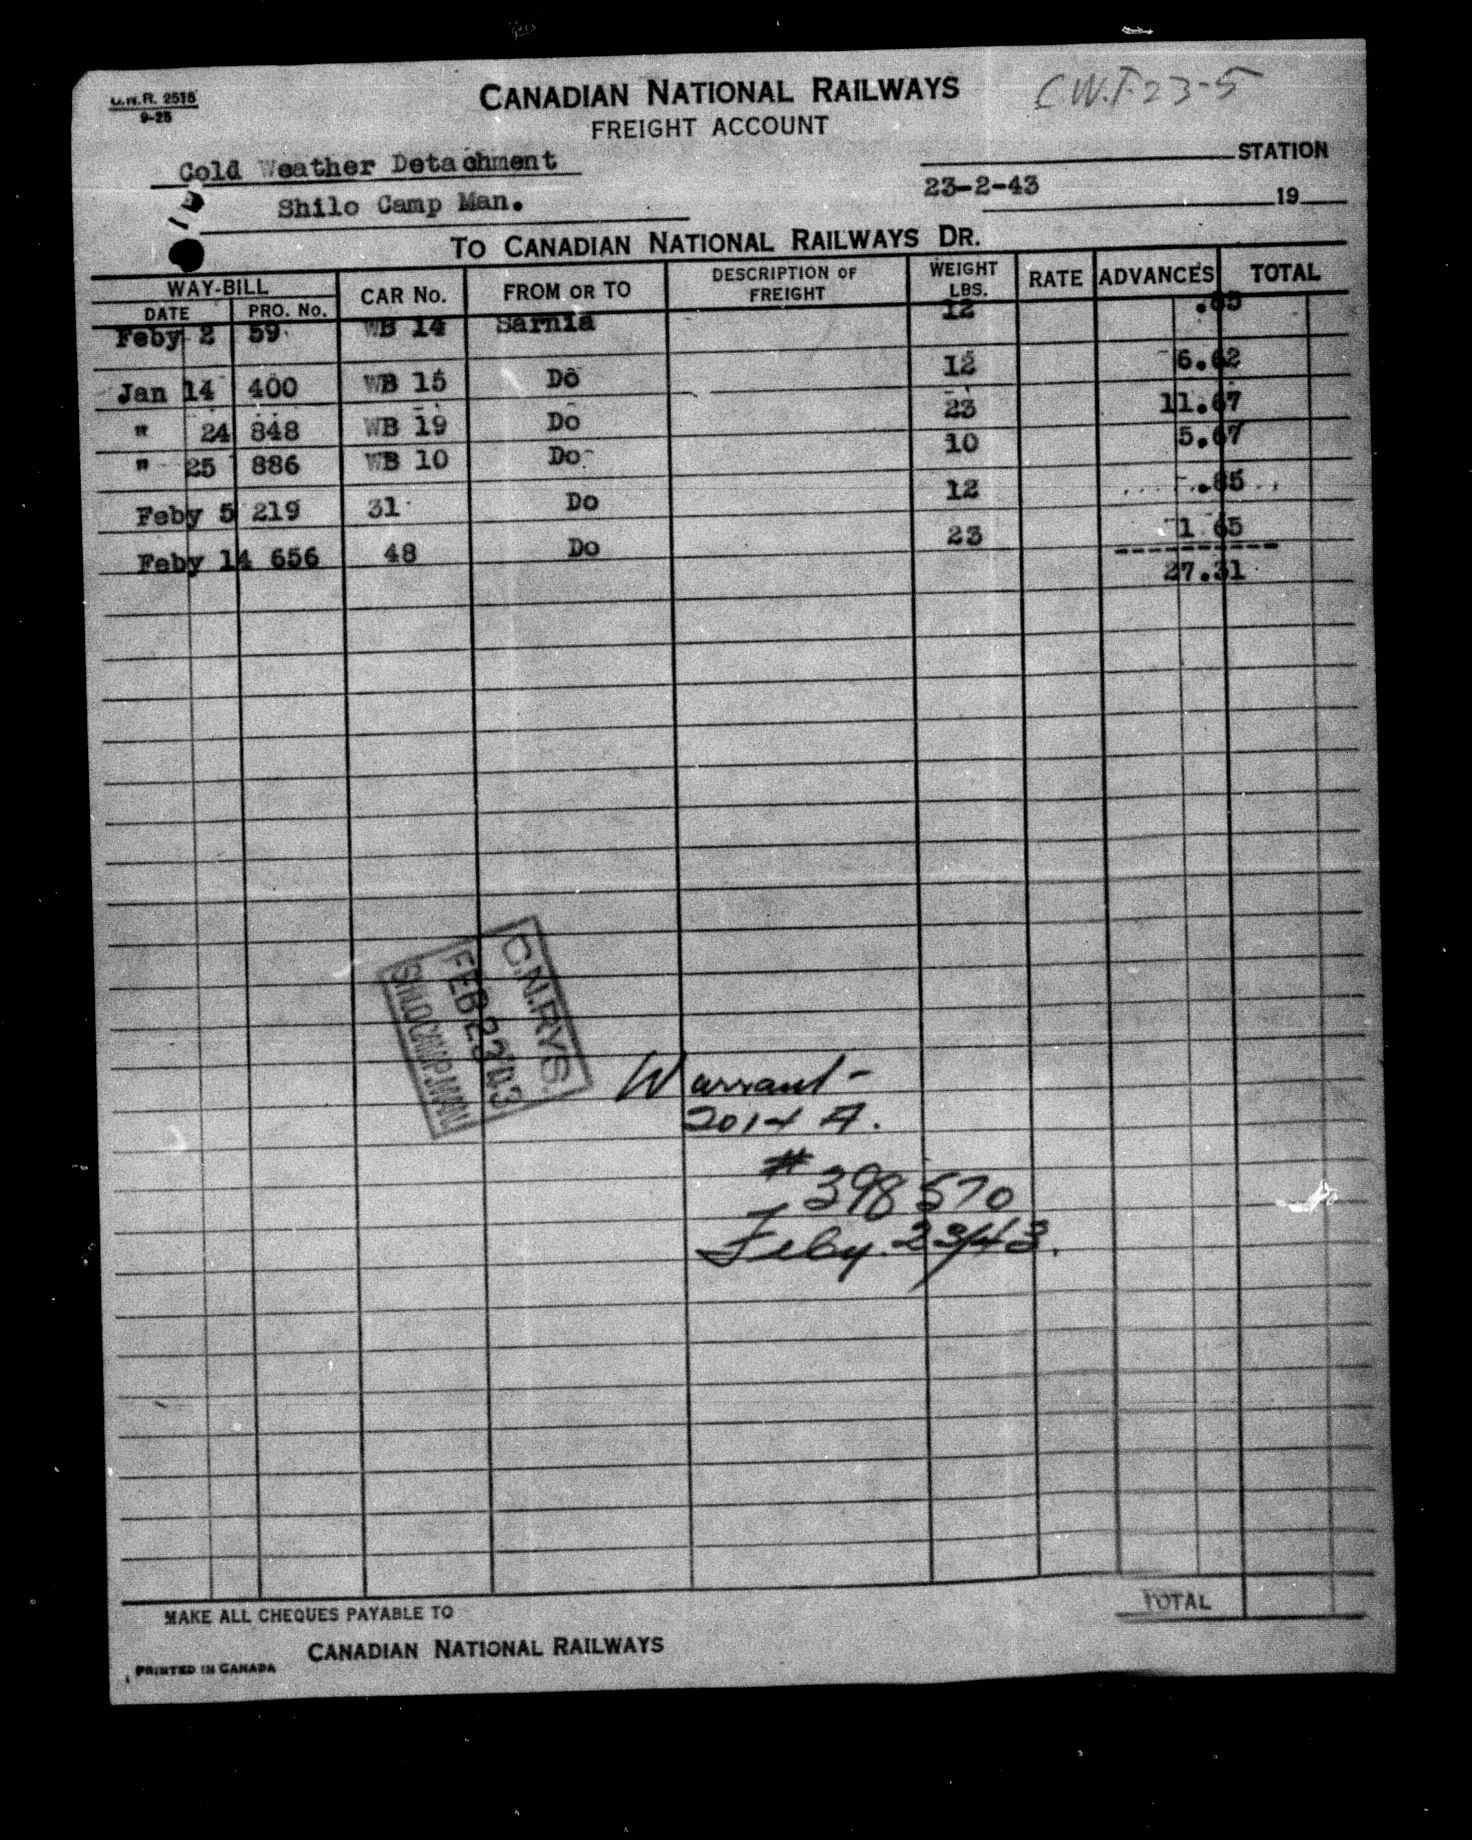 C.N.R. 2515
9-25
CANADIAN NATIONAL RAILWAYS
C.W.T-23-5
FREIGHT ACCOUNT
Cold Weather Detachment
STATION
Shilo Camp Man.
23-2-43 19
TO CANADIAN NATIONAL RAILWAYS DR.
WAY-BILL CAR No. FROM OR TO DESCRIPTION OF FREIGHT WEIGHT LBS. RATE ADVANCES TOTAL
DATE PRO. No.
Feby 2 59 WB 14 Sarnia 12 .85
Jan 14 400 WB 15 Do 12 6.62
" 24 848 WB 19 Do 23 11.67
" 25 886 WB 10 Do 10 5.67
Feby 5 219 31 Do 12 .85
Feby 14 656 48 Do 23 1 65
27.31
C.N.RYS.
FEB 23 '43
SHILO CAMP, MAN
Warrant-
2014 A.
# 398570
Feby. 23/43.
TOTAL
MAKE ALL CHEQUES PAYABLE TO
CANADIAN NATIONAL RAILWAYS
PRINTED IN CANADA